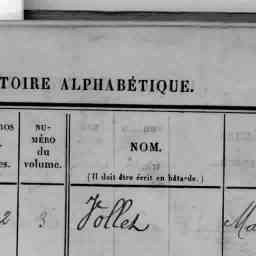 TOIRE ALPHABÉTIQUE.
NU-
MÉRO
du
volume.
NOM.
(Il doit être écrit en bâtarde.)
2 3 Vollet Ma